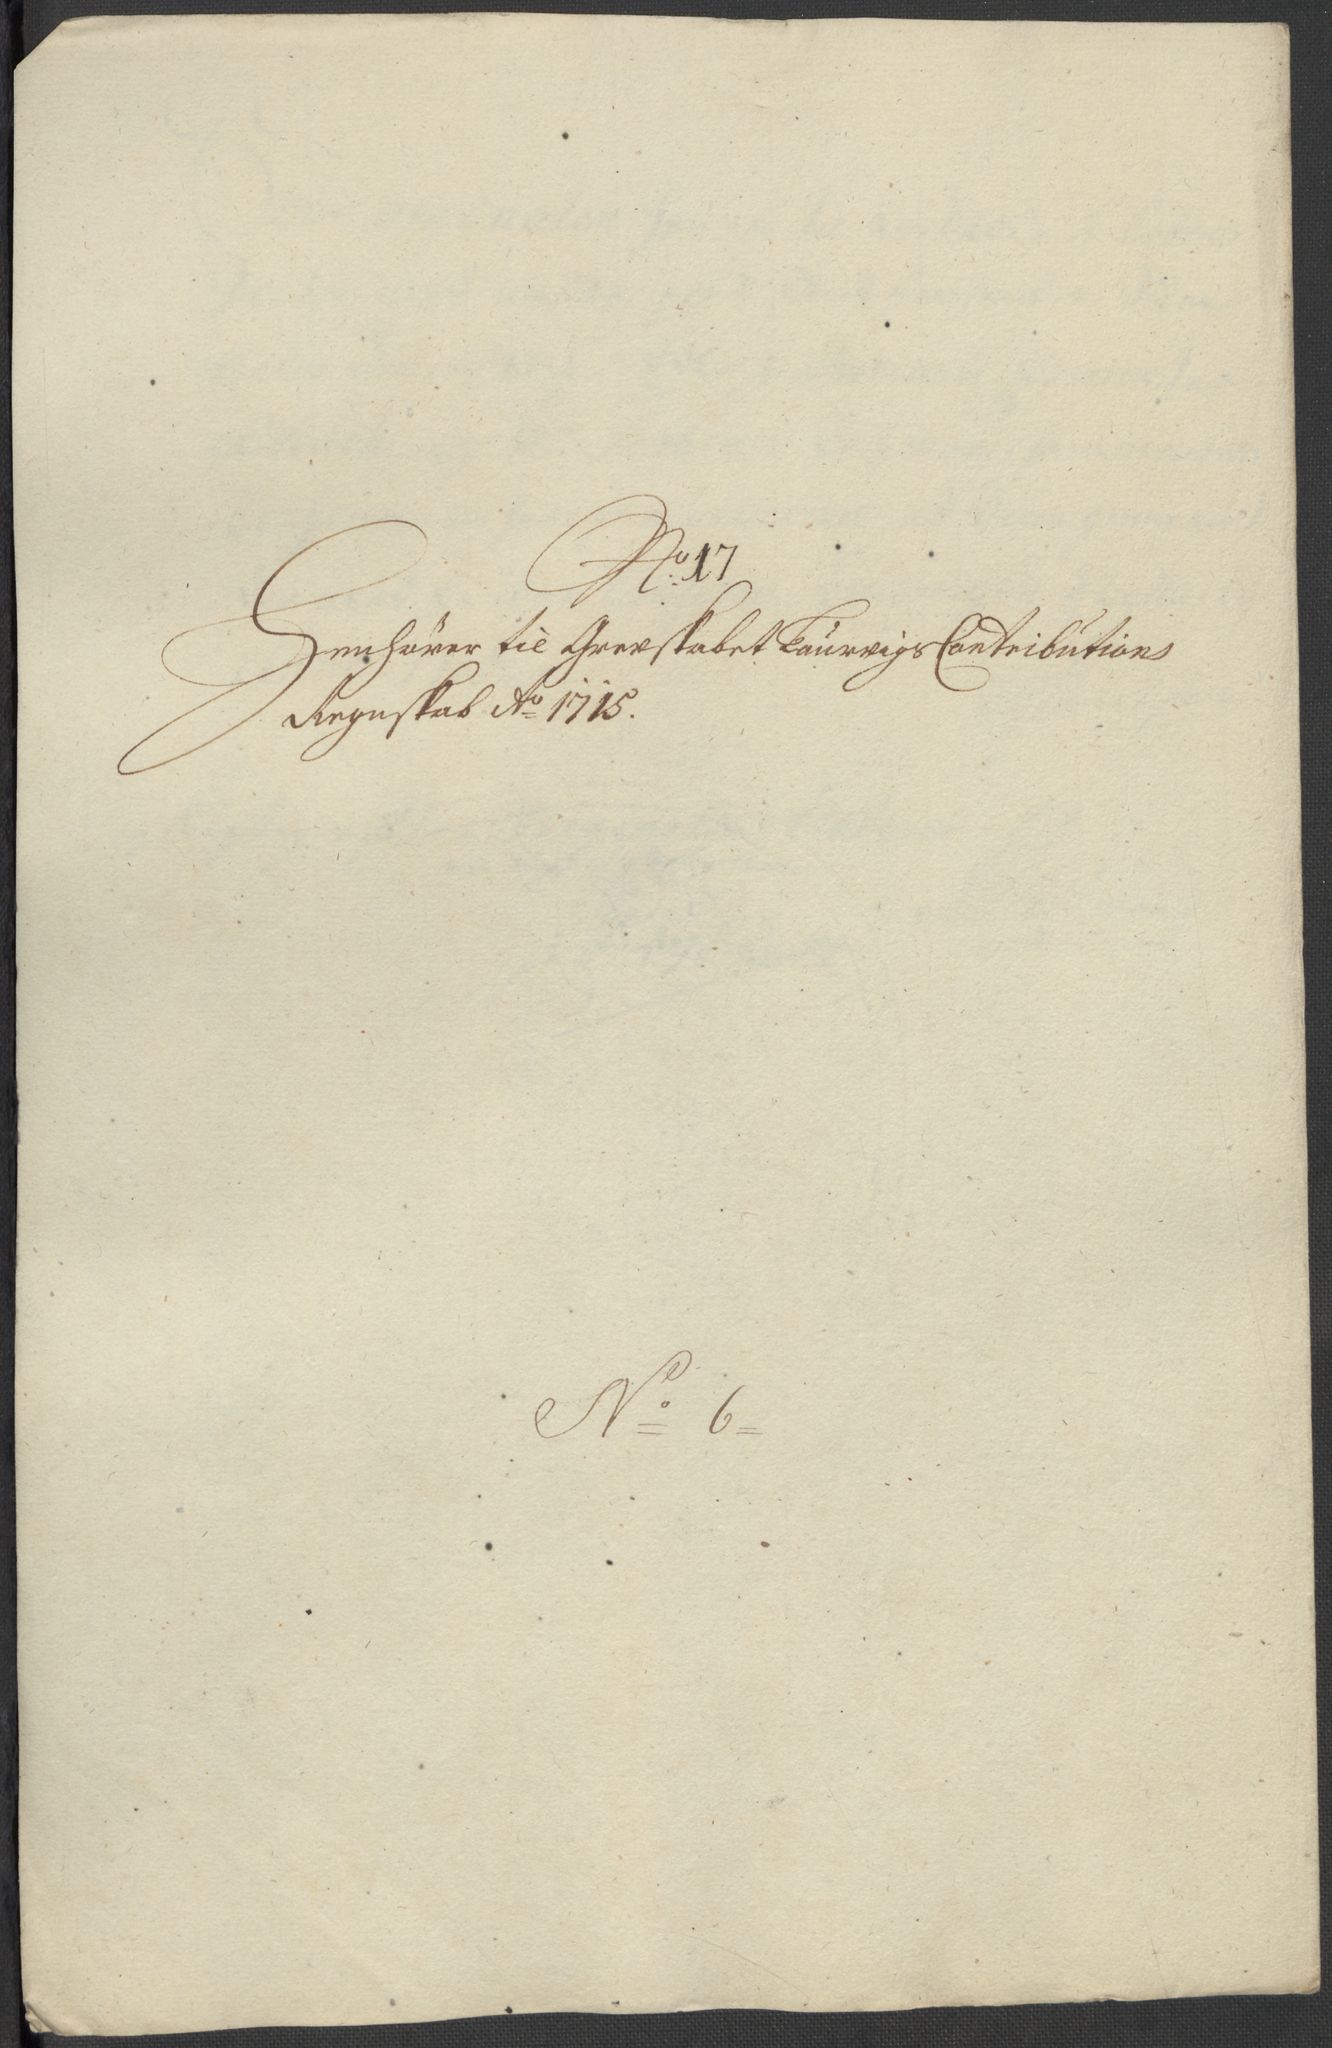 No. 17
Henhörer til Grevskabet Laurvigs Contributions
Regnskab Ao 1715.
No. 6